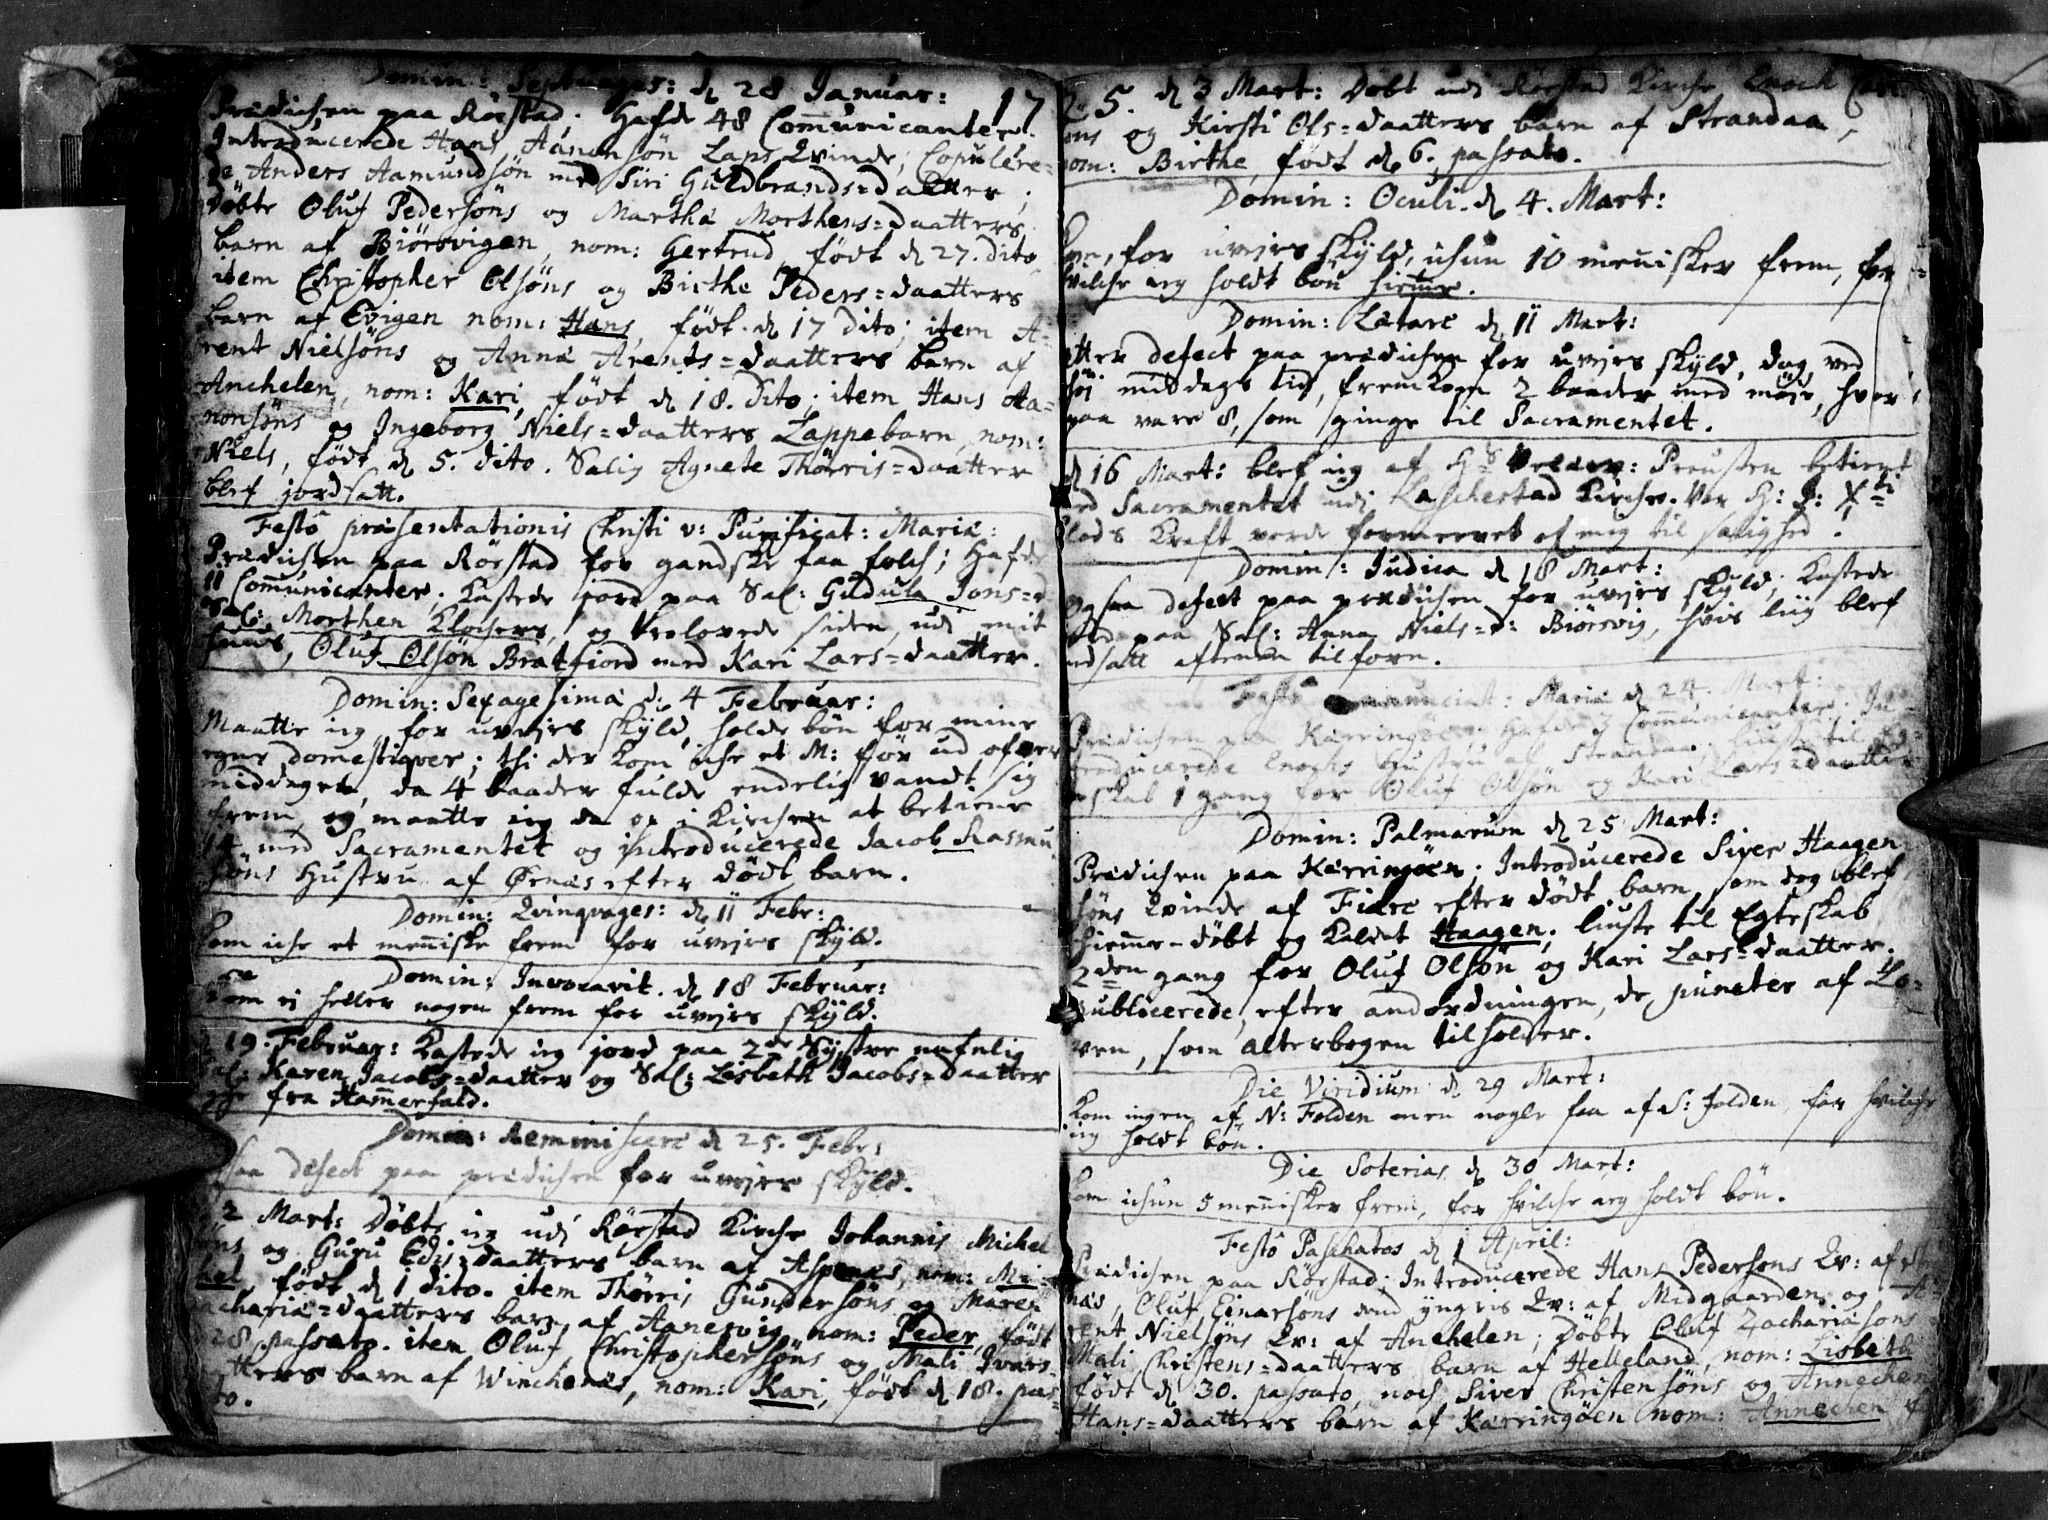 Domin: Septuages: d 28 Januar: 17
Prædichen paa Rörstad. Hafde 48 Communicanter.
Introducerede Hans Aanonsön Laps Qvinde; Copulere-
de Anders Aamundsön med Siri Guldbrands=Datter;
Döbte Oluf Pedersöns og Martha Morthens=Daatters
barn af Biörsvigen, nom: Gertrud, födt d 27. dito,
item Christopher Olsöns og Birthe Peders=daatters
barn af Evigen nom: Hans, födt d 17 dito; item A-
rent Nielsöns og Anna Arents=daatters barn af
Anchelen, nom: Kari, födt d 18. dito; item Hans Aa=
nonsöns og Ingeborg Niels=daatters Lappebarn, nom:
Niels, födt d 5. dito. Salig Agnete Thörris=daatter
blef jordsatt.
Festô præsentationis Christi v: Purificat: Mariæ:
Prædichen paa Rörstad for gandske faa folch; Hafde
11 Communicanter. Kastede jord paa Sal: Gudula Jons=d
Sal: Morthen Klochers, og trolovede siden, udi mit
huus, Oluf Olsön Bratfiord med Kari Lars=daatter.
Domin: Sexagesima d. 4 Februar:
Maatte ieg for uvejrs skyld, holde bön for mine
egne domestiqver; thi der kom iche et M: för ud ofver
middagen, da 4 baader fulde endelig vandt sig
frem, og maatte ieg da op i Kirchen at betiene
14 med Sacramentet og introducerede Jacob Rasmu
söns Hustru af Örnæs efter dödt barn.
Domin: Qvinqvages: d 11 Febr:
Kom iche et menniske frem for uvejrs skyld.
Domin: Invocavit. d 18 Februar:
Kom ej heller nogen frem for uvejrs skyld.
d 19. Februar: Kastede ieg jord paa 2de Systre nafnlig
Sal: Karen Jacobs=daatter og Sal: Lisbeth Jacobs=daatter
fra Hammerfald.
Domin: Reminiscere d 25. Febr:
saa defect paa prædichen for uvejrs skyld.
2 Mart: Döbte ieg udi Rörstad Kirche Johannis Michel
söns og Guru Edis=daatters barn af Aspenes, nom: Mi-
chel, födt d 1 dito. item Thörris Gundersöns og Maren
Zachariæ=daatters barn af Aanesvig, nom: Peder, födt
28 passato. item Oluf Christophersöns og Mali Ivars-
daatters barn af Winchenæs, nom: Kari, födt d 18. pas=
to.
5. d 3 Mart: Döbt udi Rörstad Kirche Enoch
söns og Kirsti Ols=daatters barn af Strandaa,
nom: Birthe, födt d 6. passato.
Domin: Oculi. d 4. Mart:
Kom, for uvejrs skyld, ichun 10 menisker frem, for
hvilche ieg holdt bön hiemme.
Domin: Lætare d 11 Mart:
Atter defect paa prædichen for uvejrs skyld, dog, ved
höj middags tid, fremkom 2 baader med möje, hvor
paa vare 8, som ginge til Sacramentet.
d 16 Mart: blef ieg af Hr Prousten betient
med Sacramentet udi Laschestad Kirche. Vor H: J: Xti
blods Kraft vorde formeeret af mig til salighed.
Domin: Judica d 18 Mart:
Ogsaa defect paa prædichen for uvejrs skyld; Kastede
jord paa Sal: Anna Niels=d: Biörsvig, hvis liig blef
nedsatt aftenen tilforn.
Festô Annunciat: Mariæ d 24. Mart:
Prædichen paa Kærringöen. Hafde 7 Communicanter. In-
troducerede Enochs Hustru af Strandaa. liuste til Eg-
teskab 1 gang for Oluf Olsön og Kari Lars=daatter
Domin: Palmarum d 25 Mart:
Prædichen paa Kærringöen. Introducerede Siver Haagen
söns Qvinde af Fiære efter dödt barn, som dog blef
hiemme=döbt og kaldet Haagen; liuste til Egteskab
2den gang for Oluf Olsön og Kari Lars=daatter.
Publicerede, efter anordningen, de puncter af Lo-
ven, som alterbogen tilholder.
Die Viridium d 29 Mart:
Kom ingen af N: Folden men nogle faa af S: Folden, for hvilche
ieg holdt bön.
Die Soterias d 30 Mart:
Kom ichun 5 mennisker frem, for hvilche ieg holdt bön.
Festô Paschatos d 1 April:
Prædichen paa Rörstad; Introducerede Hans Pedersöns Qv: af
næs, Oluf Einarsöns dend yngris Qv: af Midgaarden, og A-
rent Nielsöns Qv: af Anchelen; Döbte Oluf Zachariasöns
Mali Christens=daatters barn af Helleland, nom: Lisbeth
födt d 30. passato, noch Siver Christensöns og Annechen
Hans=daatters barn af Kærringöen nom: Annechen